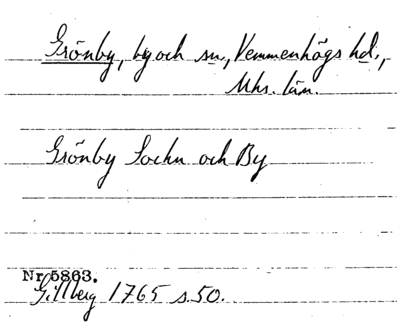 Grönby, by och sn, Vemmenhögs hd.,
Mhs. län.
Grönby Sochn och By
Nr 5863.
Gillberg 1765 s. 50.